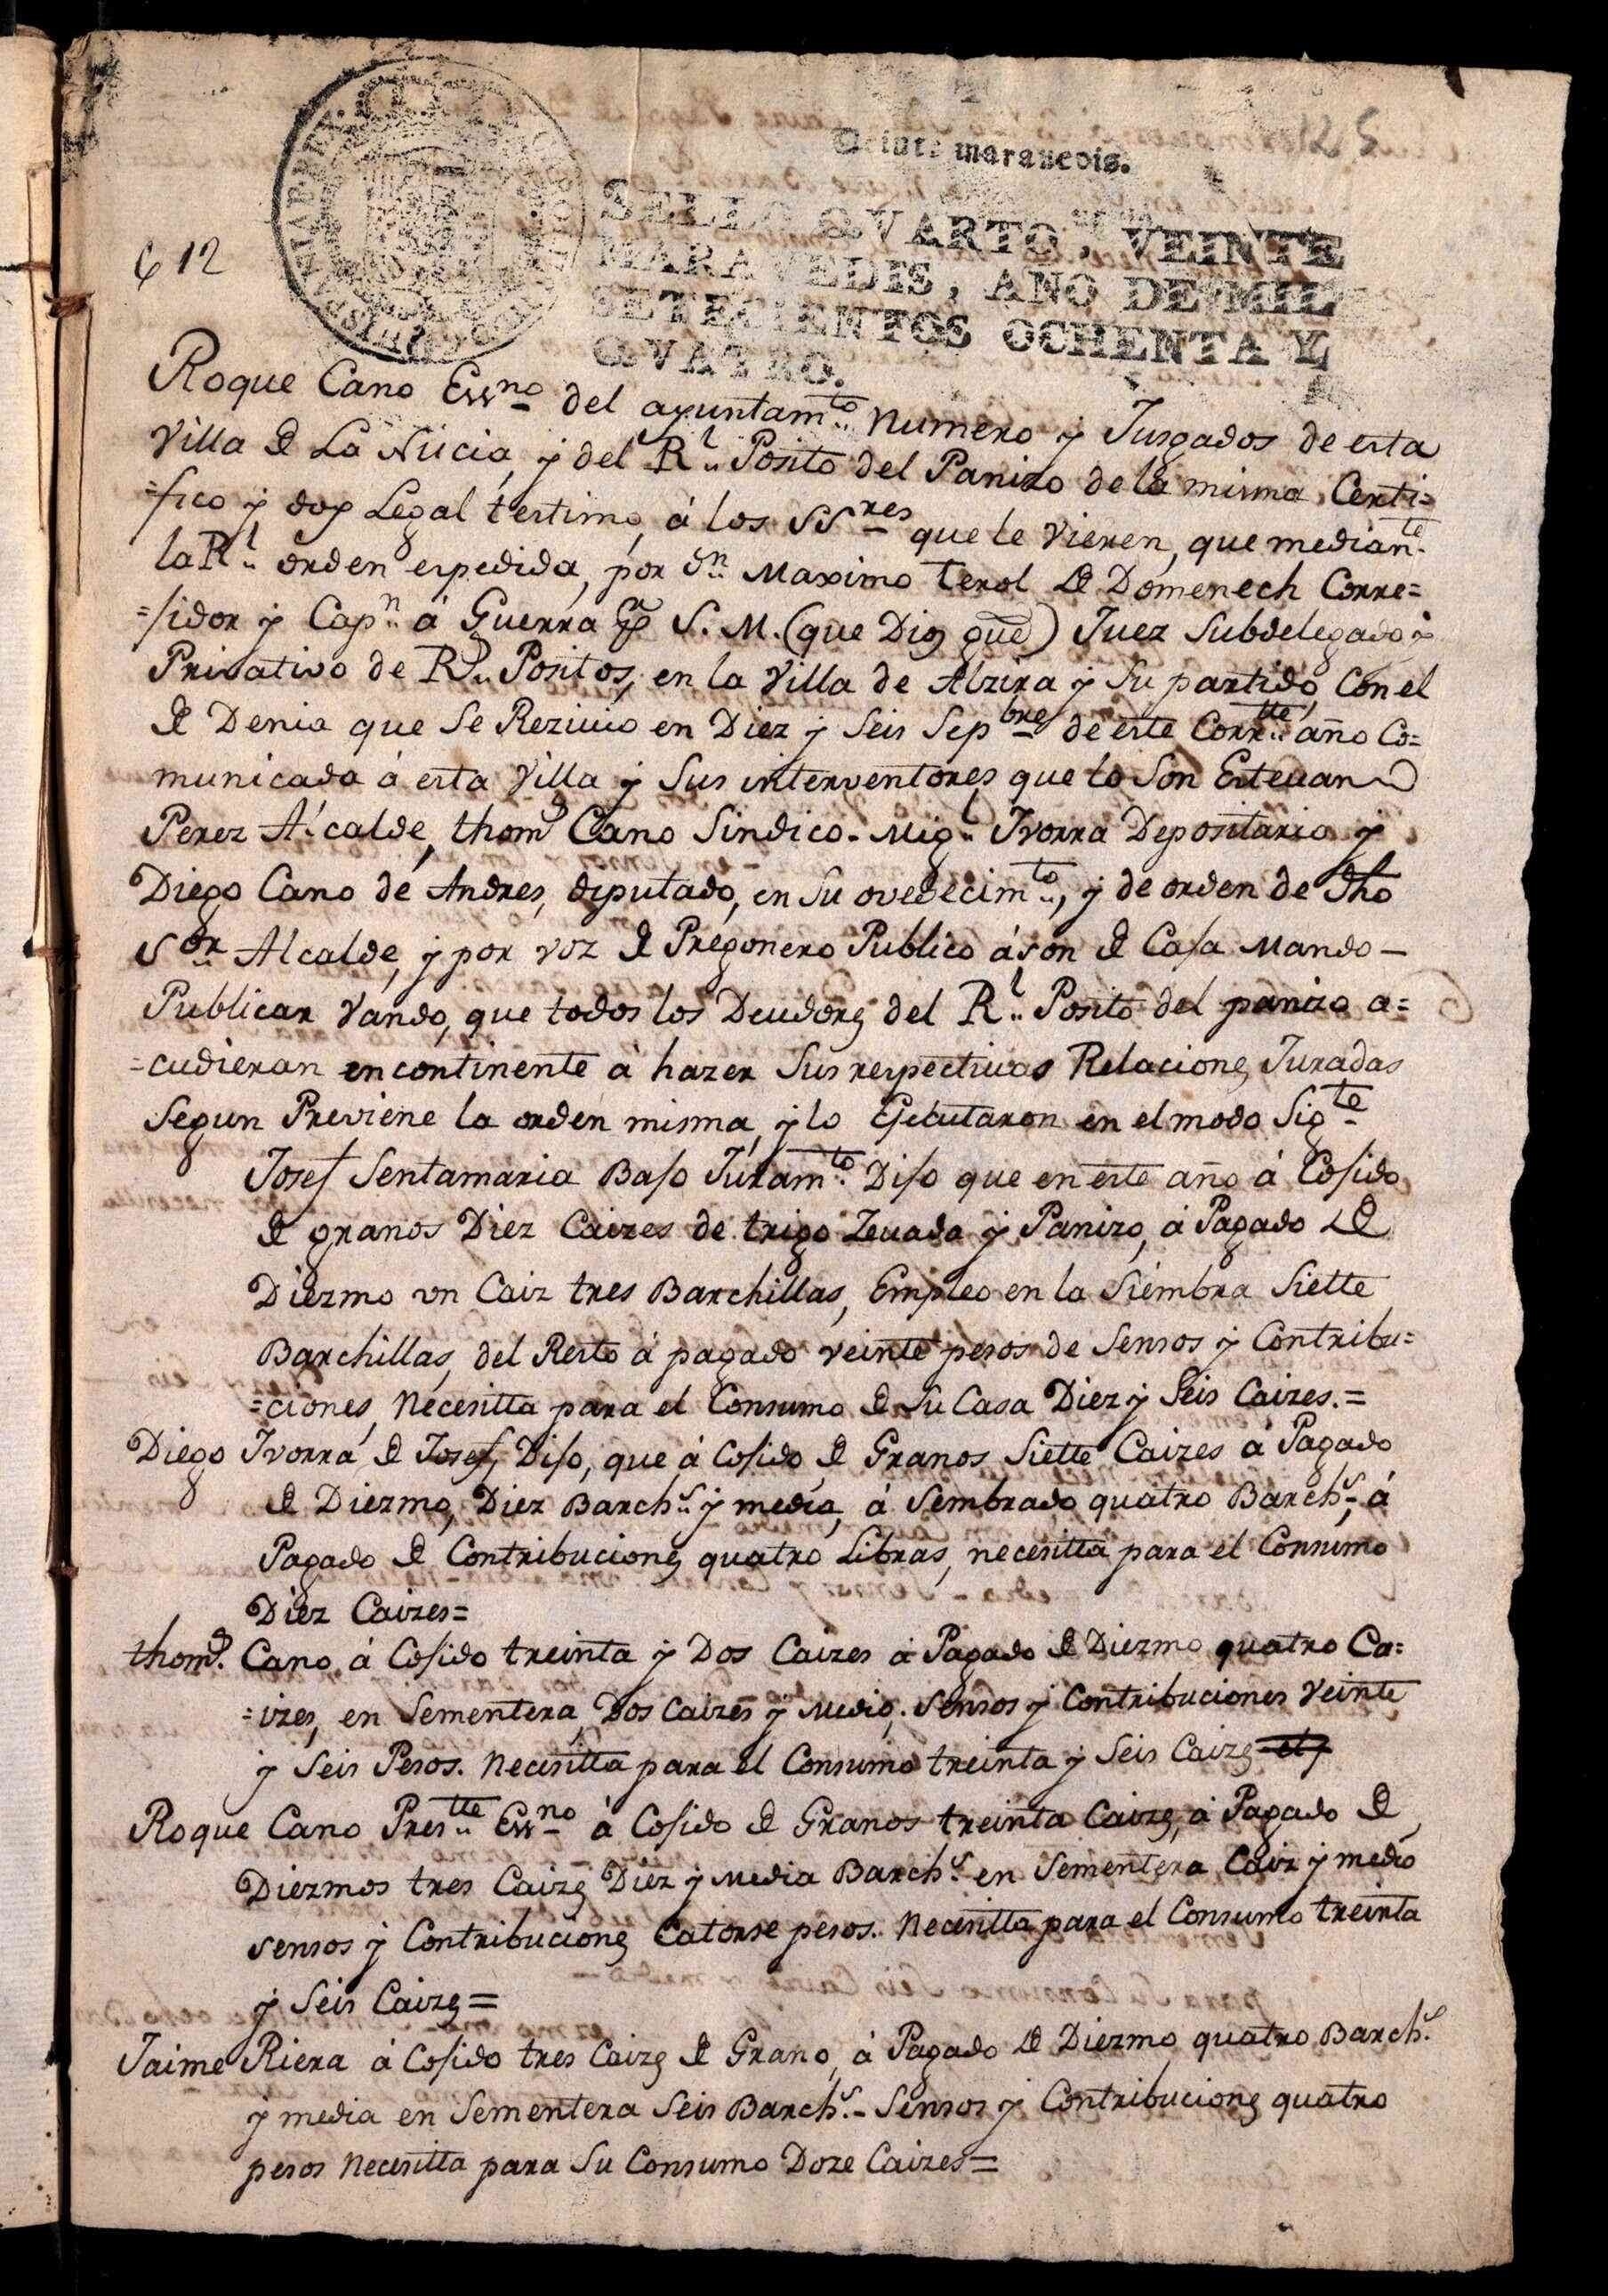 Veinte marauedis.
SELLO QVARTO, VEINTE
MARAVEDIS, AÑO DE MIL
SETECIENTOS OCHENTA Y
QVATRO.
612
Roque Cano Essno del ayuntamto Numero y Jusgados de esta
Villa de La Nucia, y del Rl Posito del Panizo de la misma, Certi=
=fico y doy Legal testimo, á los SSres que le Vieren, que mediante
la Rl orden espedida, por dn Maximo Terol de Domenech Corre=
=sidor y Capn á Guerra pr S. M. (que Dios gue) Juez Subdelegado y
Privativo de Rs Positos, en la Villa de Alzira y Su partido, Con el
de Denia que Se Reziuio en Diez y Seis Sepbre de este Corrtte año Co=
municada á esta Villa y Sus interventores que lo Son Esteuan
Perez Alcalde, thoms Cano Sindico - Migl Jvorra Depositario y
Diego Cano de Andres, diputado, en Su ovedecimto, y de orden de dho
Sor Alcalde, y por voz de Pregonero Publico á son de Casa Mando -
Publicar Vando, que todos los Deudores del Rl Posito del panizo a=
=cudieran encontinente á hazer Sus respectiuas Relaciones Juradas
Segun Previene la orden misma, y lo Ejecutaron en el modo Sigte
Josef Sentamaria Baso Juramto Diso que en este año á Cosido
de granos Diez Caizes de trigo Zeuada y Panizo, á Pagado de
Diezmo vn Caiz tres Barchillas, Empleo en la Siembra Siette
Barchillas, del Resto á pagado veinte pesos de Sensos y Contribu=
=ciones, Necesitta para el Consumo de Su Casa Diez y Seis Caizes.=
Diego Jvorra de Josef, Diso, que á Cosido de Granos Siette Caizes á Pagado
de Diezmo, Diez Barchs y media, á Sembrado quatro Barchs, á
Pagado de Contribuciones quatro Libras, necesitta para el Consumo
Diez Caizes=
thoms. Cano á Cosido treinta y Dos Caizes á Pagado de Diezmo quatro Ca=
=izes, en Sementera, Dos Caizes y Medio. Sensos y Contribuciones Veinte
y Seis Pesos. Necesitta para el Consumo treinta y Seis Caizes
Roque Cano Prestte Essno á Cosido de Granos treinta Caizes, á Pagado de
Diezmos tres Caizes Diez y Media Barchs en Sementera Caiz y medio
sensos y Contribuciones Catorse pesos. Necesitta para el Consumo treinta
y Seis Caizes=
Jaime Riera á Cosido tres Caizes de Grano, á Pagado de Diezmo quatro Barchs
y media en Sementera Seis Barchs - Sensos y Contribuciones quatro
pesos Necesitta para Su Consumo Doze Caizes=